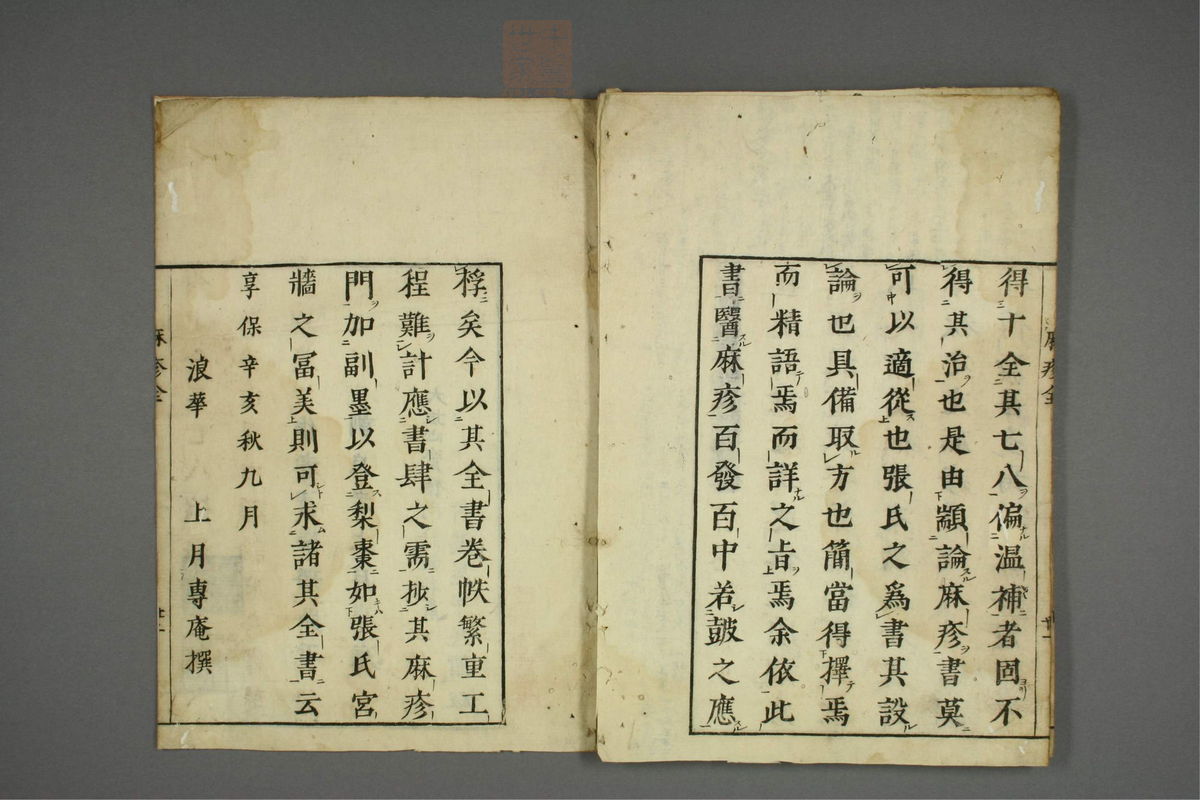 得十全其七八偏溫補者固不
得其治也是由顓論麻疹書莫
可以適從也張氏之爲書其設
論也具備取方也簡當得擇焉
而精語焉而詳之旨焉余依此
書醫麻疹百發百中若鼓之應
桴矣今以其全書卷帙繁重工
程難計應書肆之需抄其麻疹
門加副墨以登梨棗如張氏宮
牆之富美則可求諸其全書云
享保辛亥秋九月
浪華 上月專庵撰
麻疹全